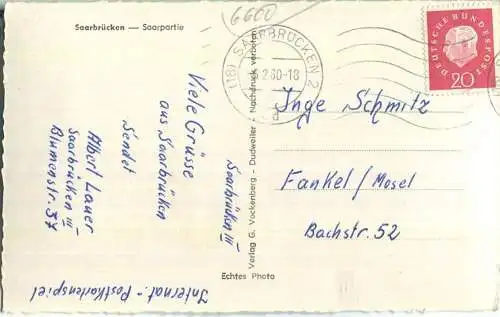 Saarbrücken — Saarpartie
6600
(18) SAARBRÜCKEN 2
2.60-18
a
DEUTSCHE BUNDESPOST
20
Inge Schmitz
Fankel/Mosel
Bachstr. 52
Saarbrücken III
Viele Grüsse
aus Saarbrücken
sendet
Albert Lauer
Saarbrücken III
Blumenstr. 37
Internat.-Postkartenspiel
Verlag G. Vockenberg - Dudweiler - Nachdruck verboten
Echtes Photo